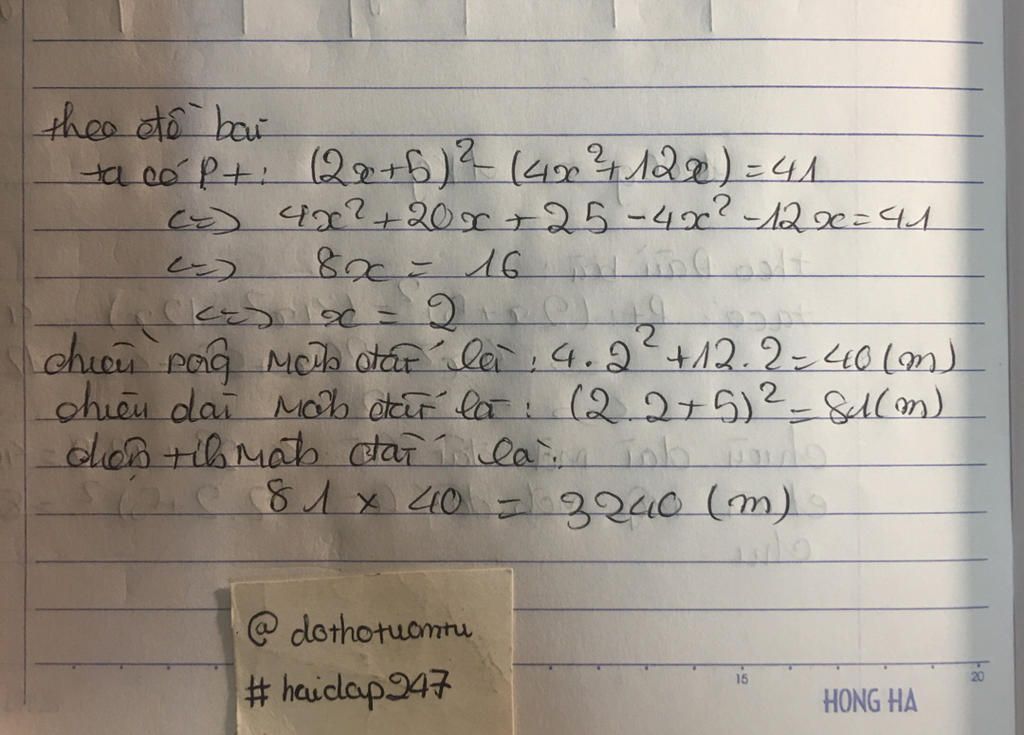 theo đề bài
ta có Pt: (2x+5)² - (4x²+12x) = 41
<=> 4x² + 20x + 25 - 4x² - 12x = 41
<=> 8x = 16
<=> x = 2
chiều rộng mảnh đất là : 4.2² + 12.2 = 40 (m)
chiều dài mảnh đất là : (2.2+5)² = 81 (m)
diện tích mảnh đất là:
81 x 40 = 3240 (m)
@ dothotuomtu
# hoidap247
15
20
HONG HA